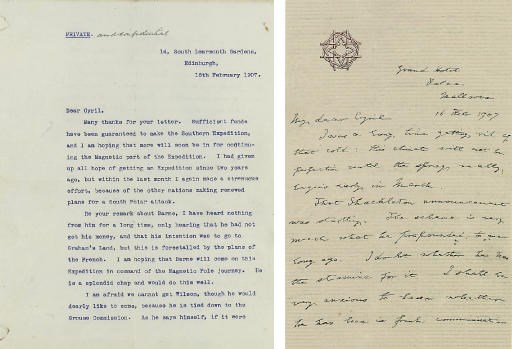 PRIVATE. and confidential
14, South Learmonth Gardens,
Edinburgh,
15th February 1907.
Dear Cyril,
Many thanks for your letter. Sufficient funds
have been guaranteed to make the Southern Expedition,
and I am hoping that more will soon be in for continu-
ing the Magnetic part of the Expedition. I had given
up all hope of getting an Expedition since two years
ago, but within the last month I again made a strenuous
effort, because of the other nations making renewed
plans for a South Polar attack.
Re your remark about Barne, I have heard nothing
from him for a long time, only hearing that he had not
got his money, and that his intention was to go to
Graham's Land, but this is forestalled by the plans of
the French. I am hoping that Barne will come on this
Expedition in command of the Magnetic Pole journey. He
is a splendid chap and would do this well.
I am afraid we cannot get Wilson, though he would
dearly like to come, because he is tied down to the
Grouse Commission. As he says himself, if it were
Grand Hotel
16 Feb 1907
My dear Cyril
I was a long time getting rid of
that cold: this climate will not be
perfection until the spring really
begins early in March
That Shackleton announcement
was startling. The scheme is very
much what he propounded to me
long ago. I doubt whether he has
the stamina for it I shall be
very anxious to learn whether
he has been in fresh